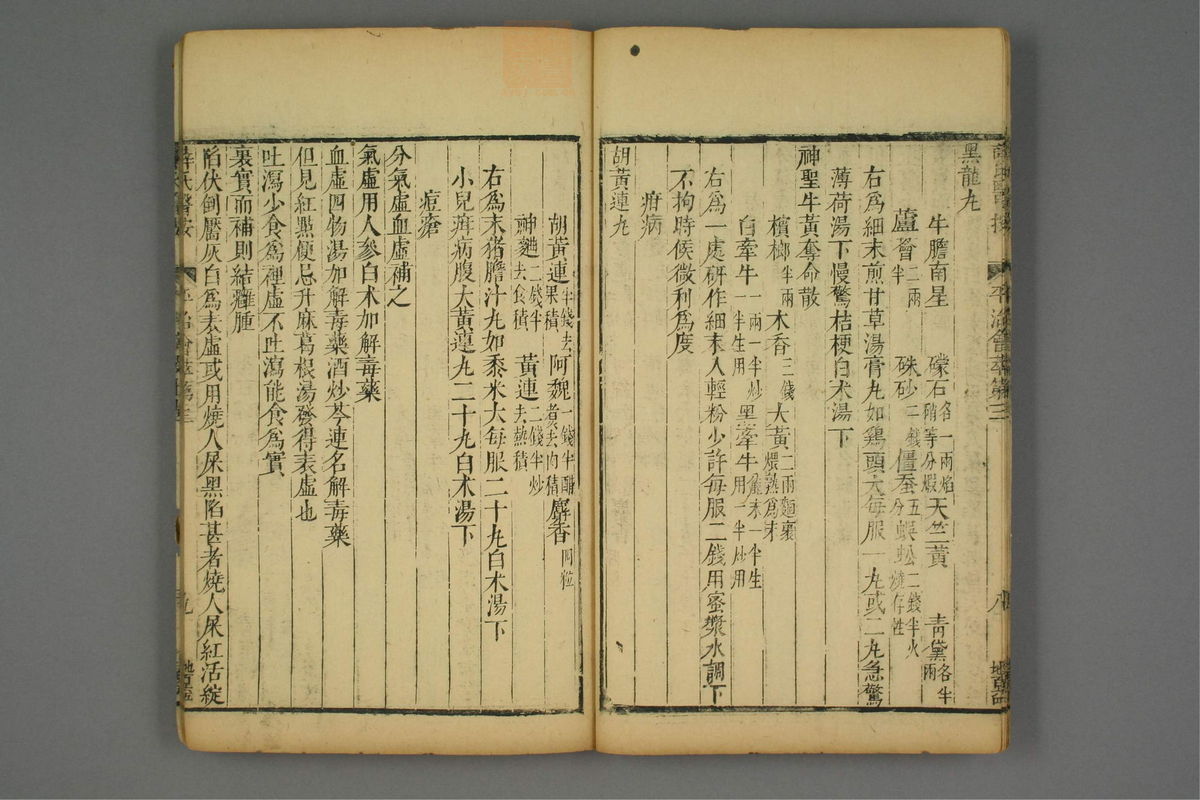 黑龍丸
牛膽南星 礞石各一兩焰硝等分煆 天竺黃 青黛各半兩
蘆薈二兩半 硃砂二錢 僵蚕五分 蜈蚣二錢半火燒存性
右爲細末煎甘草湯膏丸如鷄頭大每服一丸或二丸急驚
薄荷湯下慢驚桔梗白术湯下
神聖牛黃奪命散
檳榔半兩 木香三錢 大黃二兩麵裹煨熟爲末
白牽牛一兩一半炒一半生用 黑牽牛麄末一半生用一半炒用
右爲一處研作細末入輕粉少許每服二錢用蜜漿水調下
不拘時候微利爲度
疳病
胡黃連丸
胡黃連半錢去果積 阿魏一錢半醋煑去肉積 麝香四粒
神麯二錢半去食積 黃連二錢半炒去熱積
右爲末猪膽汁丸如黍米大每服二十丸白术湯下
小兒疳病腹大黃連丸二十丸白术湯下
痘瘡
分氣虛血虛補之
氣虛用人參白术加解毒藥
血虛四物湯加解毒藥酒炒芩連名解毒藥
但見紅㸃便忌升麻葛根湯發得表虛也
吐瀉少食爲裡虛不吐瀉能食爲實
裏實而補則結癰腫
陷伏倒靨灰白爲表虛或用燒人屎黑陷甚者燒人屎紅活綻
薛氏醫按
平治會萃第三
九